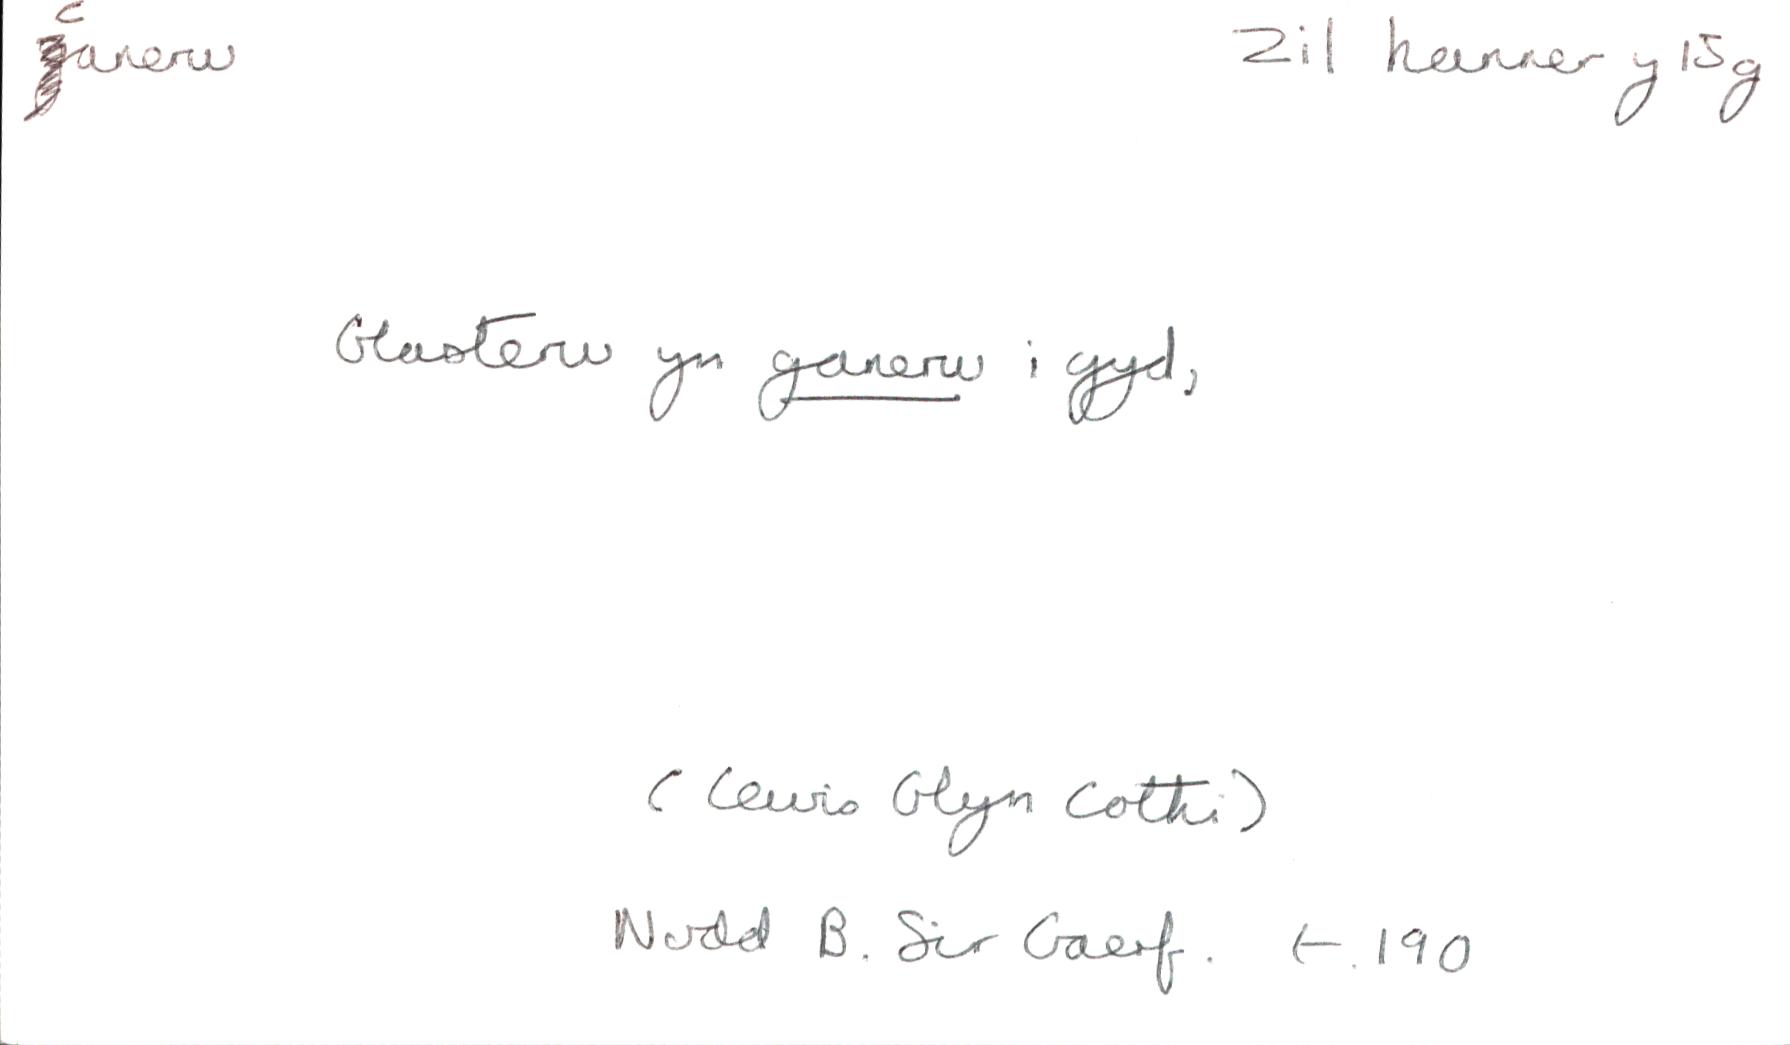 canerw 2il hanner y 15g
Glasterw yn ganerw i gyd,
(Lewis Glyn Cothi)
Nodd B. Sir Gaerf. t. 190